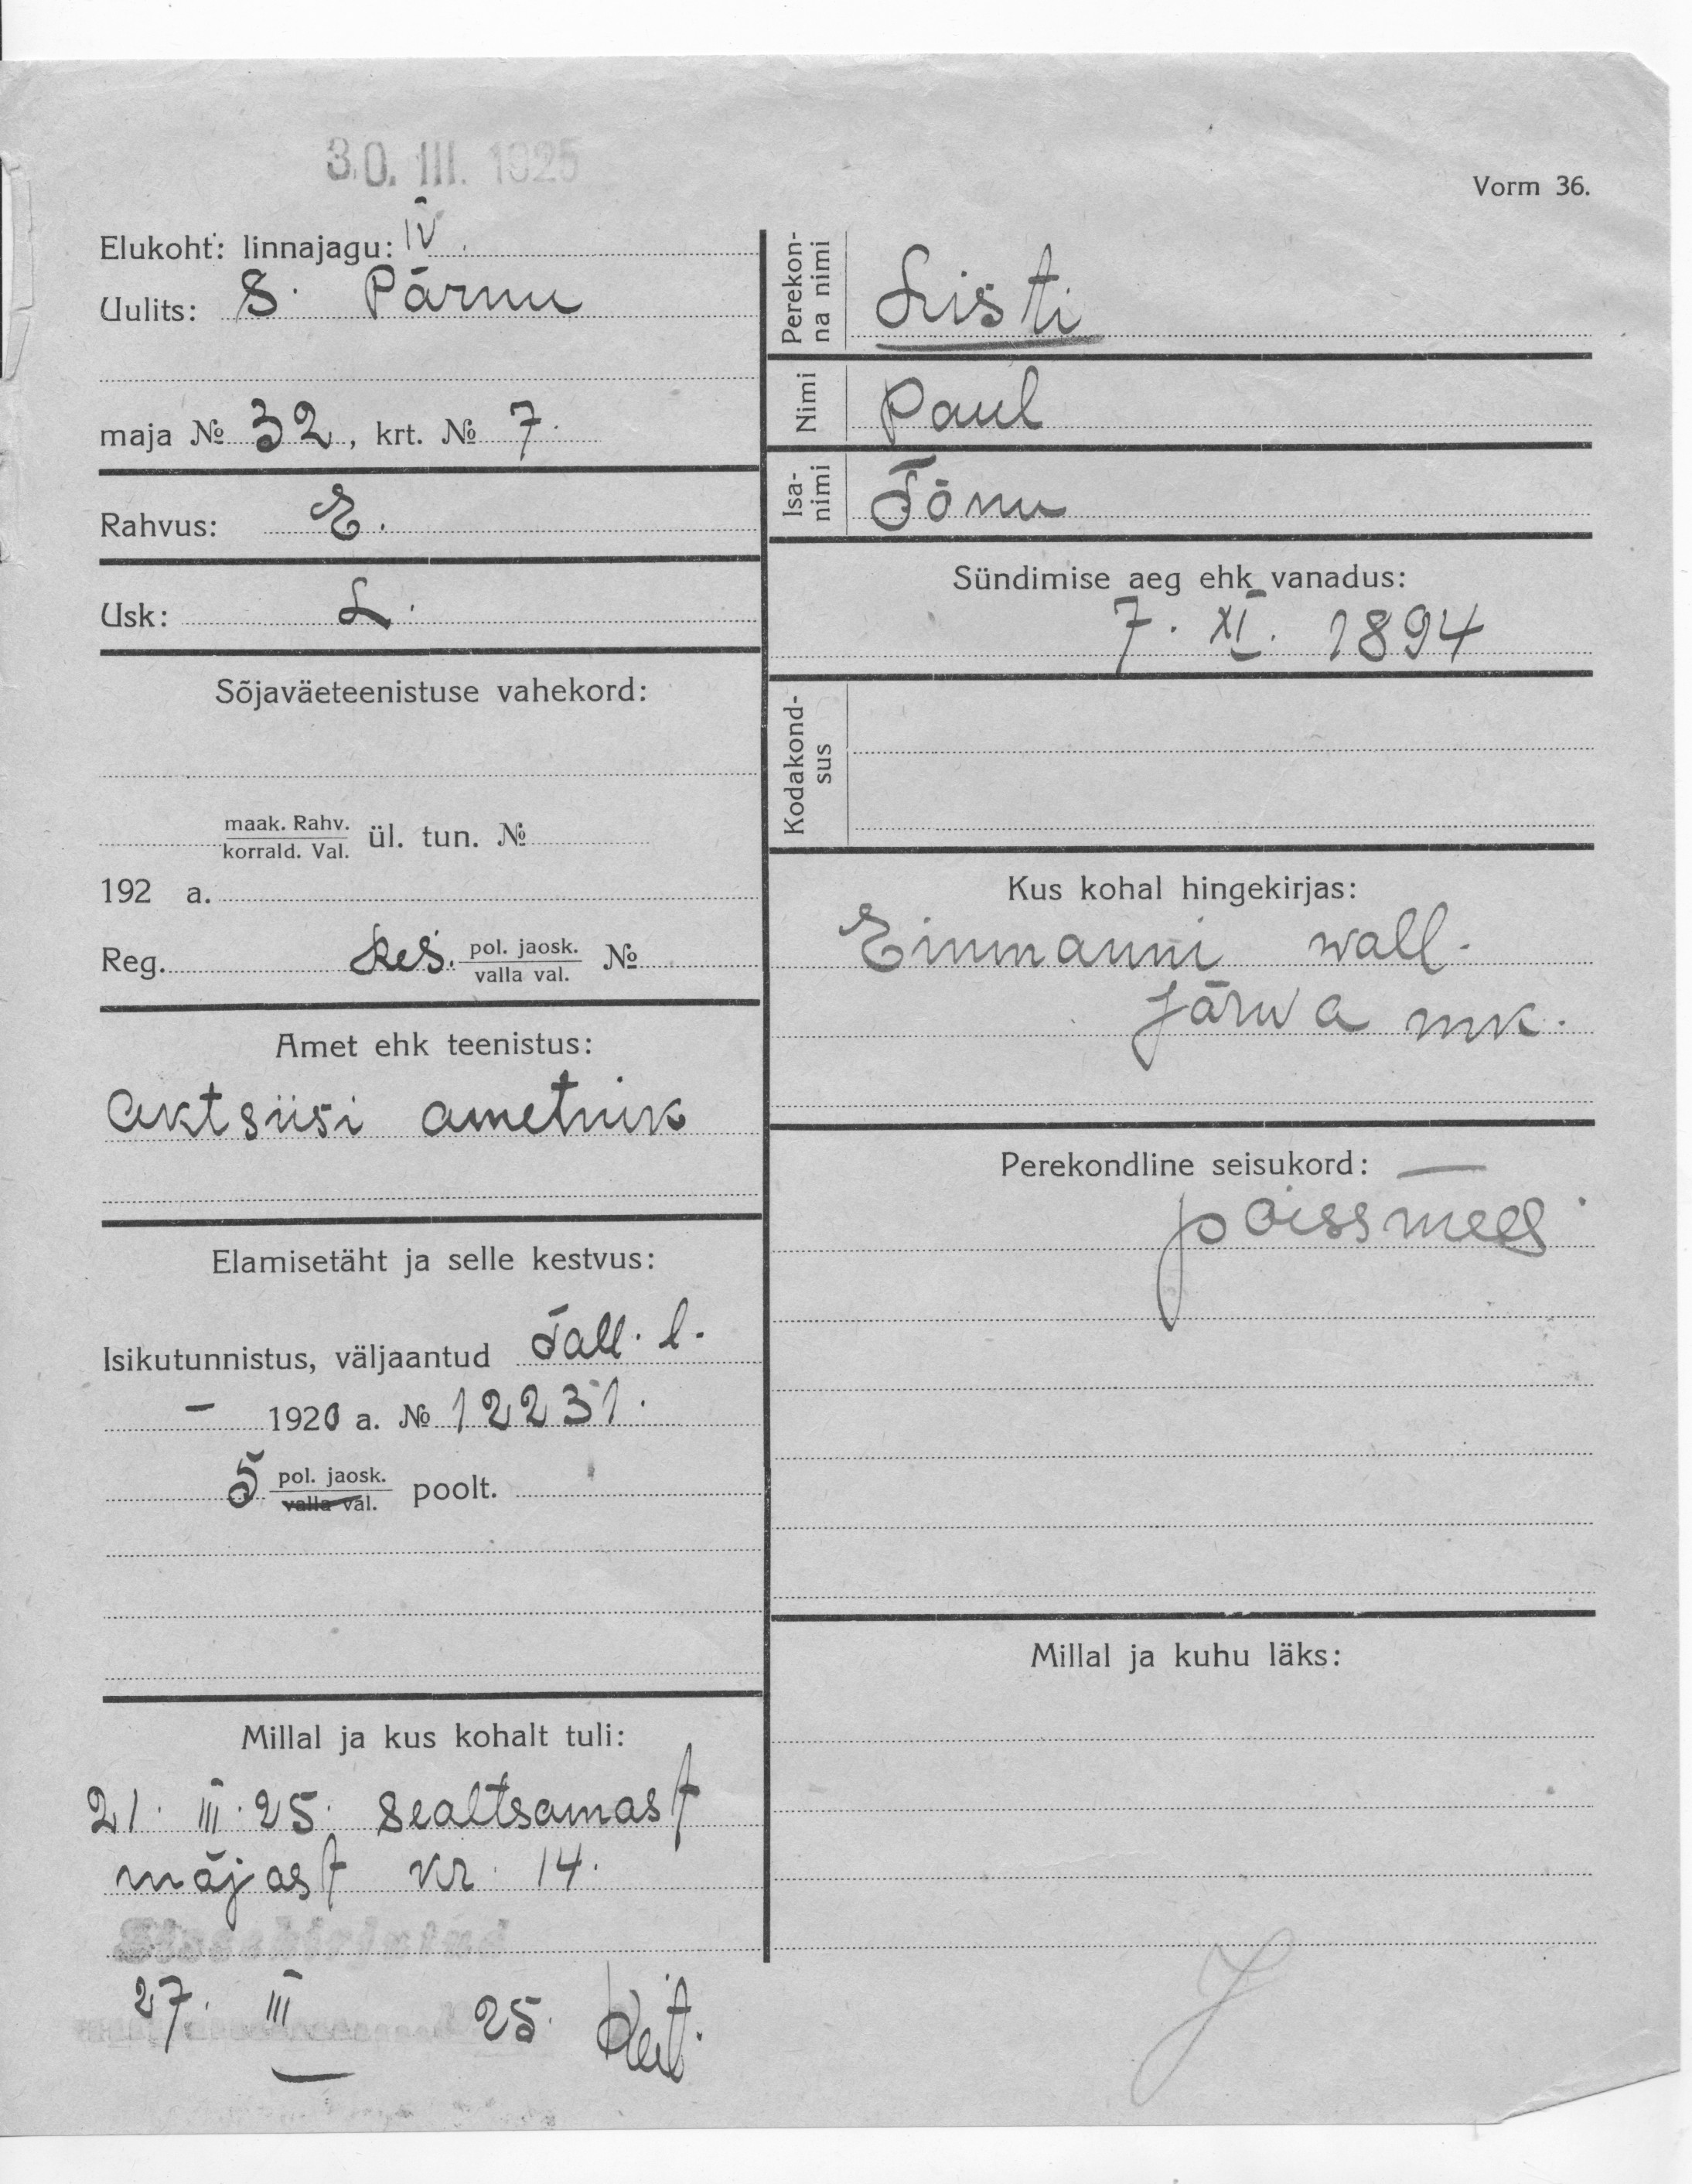 30. III. 1925
Vorm 36.
Elukoht: linnajagu: IV.
Uulits: S. Pärnu
maja № 32, krt. № 7.
Rahvus: E.
Usk: L.
Sõjaväeteenistuse vahekord:
maak. Rahv.
korrald. Val. ül. tun. №
192 a.
Reg. Res. pol. jaosk.
valla val. №
Amet ehk teenistus:
Aktsiisi ametnik
Elamisetäht ja selle kestvus:
Isikutunnistus, väljaantud Tall. l.
– 1920 a. № 12231.
5 pol. jaosk.
valla val. poolt.
Millal ja kus kohalt tuli:
21. III. 25. sealtsamast
majast kr. 14.
Sissekirjutud
27. III 25.
Perekon-
na nimi
Listi
Nimi
Paul
Isa-
nimi
Tõnu
Sündimise aeg ehk vanadus:
7. XI. 1894
Kodakond-
sus
Kus kohal hingekirjas:
Einmanni wall.
Järwa mk.
Perekondline seisukord: —
poissmees.
Millal ja kuhu läks: